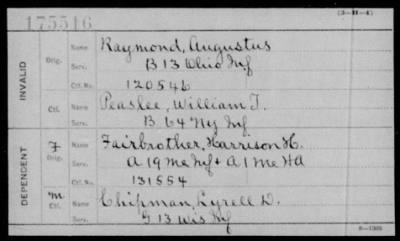 175516
(3-H-4)
INVALID
Orig. Name Raymond, Augustus
Serv. B 13 Ohio Inf
Ctf. No. 120546
Ctf. Name Peaslee, William T.
Serv. B 64 Ny Inf
DEPENDENT
F Orig. Name Fairbrother, Harrison H.
Serv. A 19 Me Inf + A 1 Me HA
Ctf. No. 131554
M Ctf. Name Chipman, Lyrell D.
Serv. G 13 Wis Inf